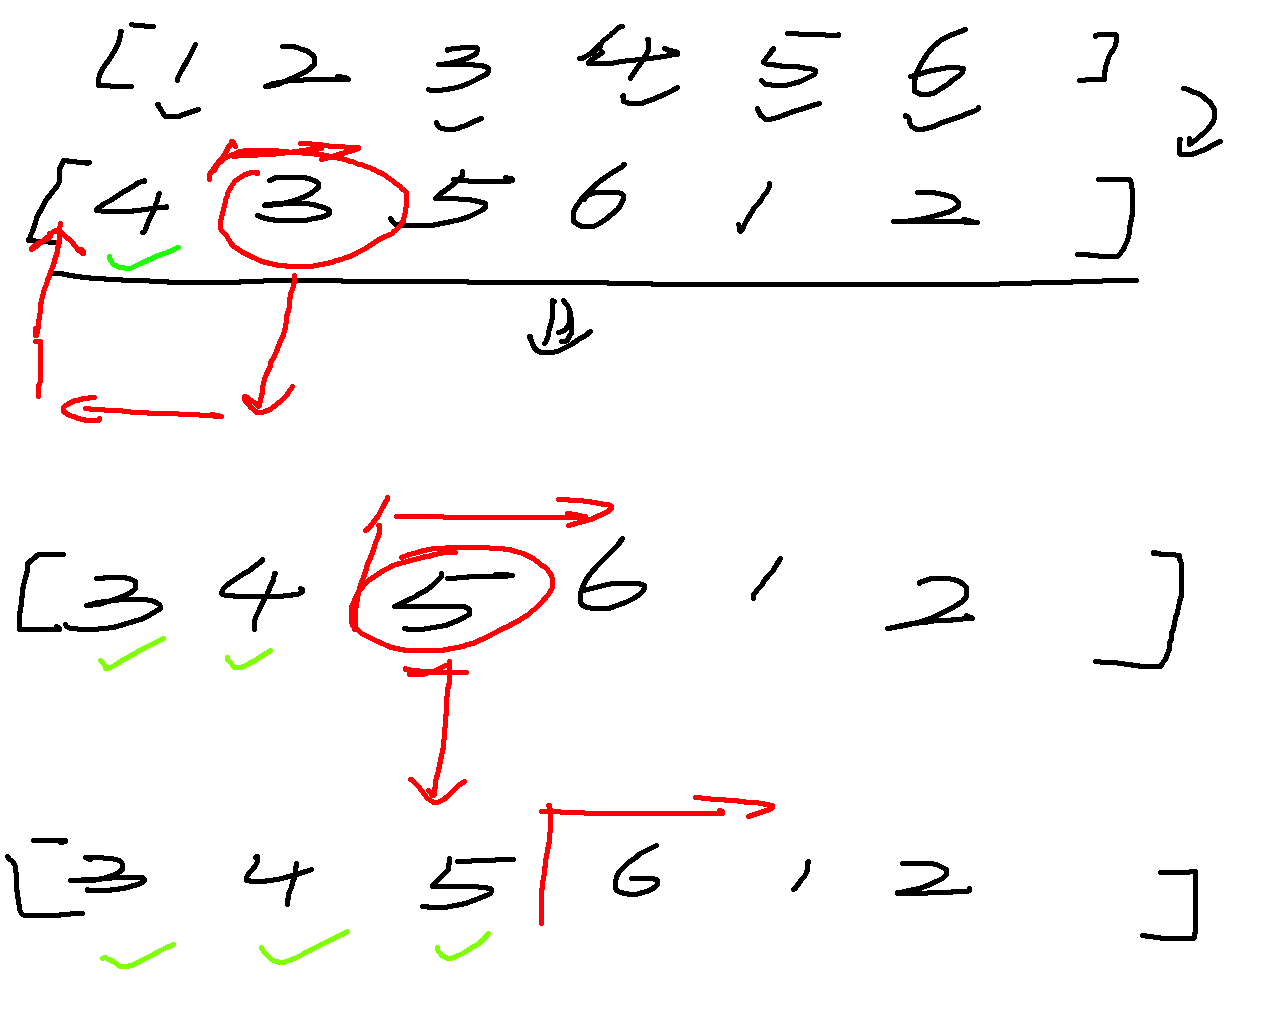 [1 2 3 4 5 6]
[4 3 5 6 1 2]
[3 4 5 6 1 2]
[3 4 5 6 1 2]